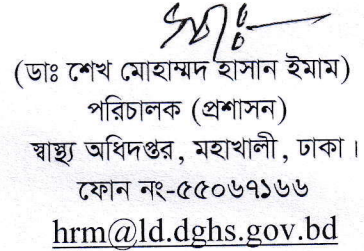 (ডাঃ শেখ মোহাম্মদ হাসান ইমাম)
পরিচালক (প্রশাসন)
স্বাস্থ্য অধিদপ্তর, মহাখালী, ঢাকা।
ফোন নং-৫৫০৬৭১৬৬
hrm@ld.dghs.gov.bd